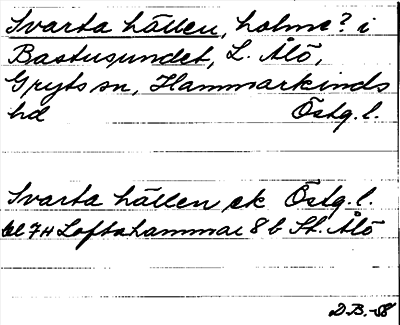 Svarta hällen, holme? i
Bastusundet, L. Ålö,
Gryts sn, Hammarkinds
hd Östg. l.
Svarta hällen ek Östg. l.
bl 7H Loftahammar 8 b St. Ålö
D.B.-58